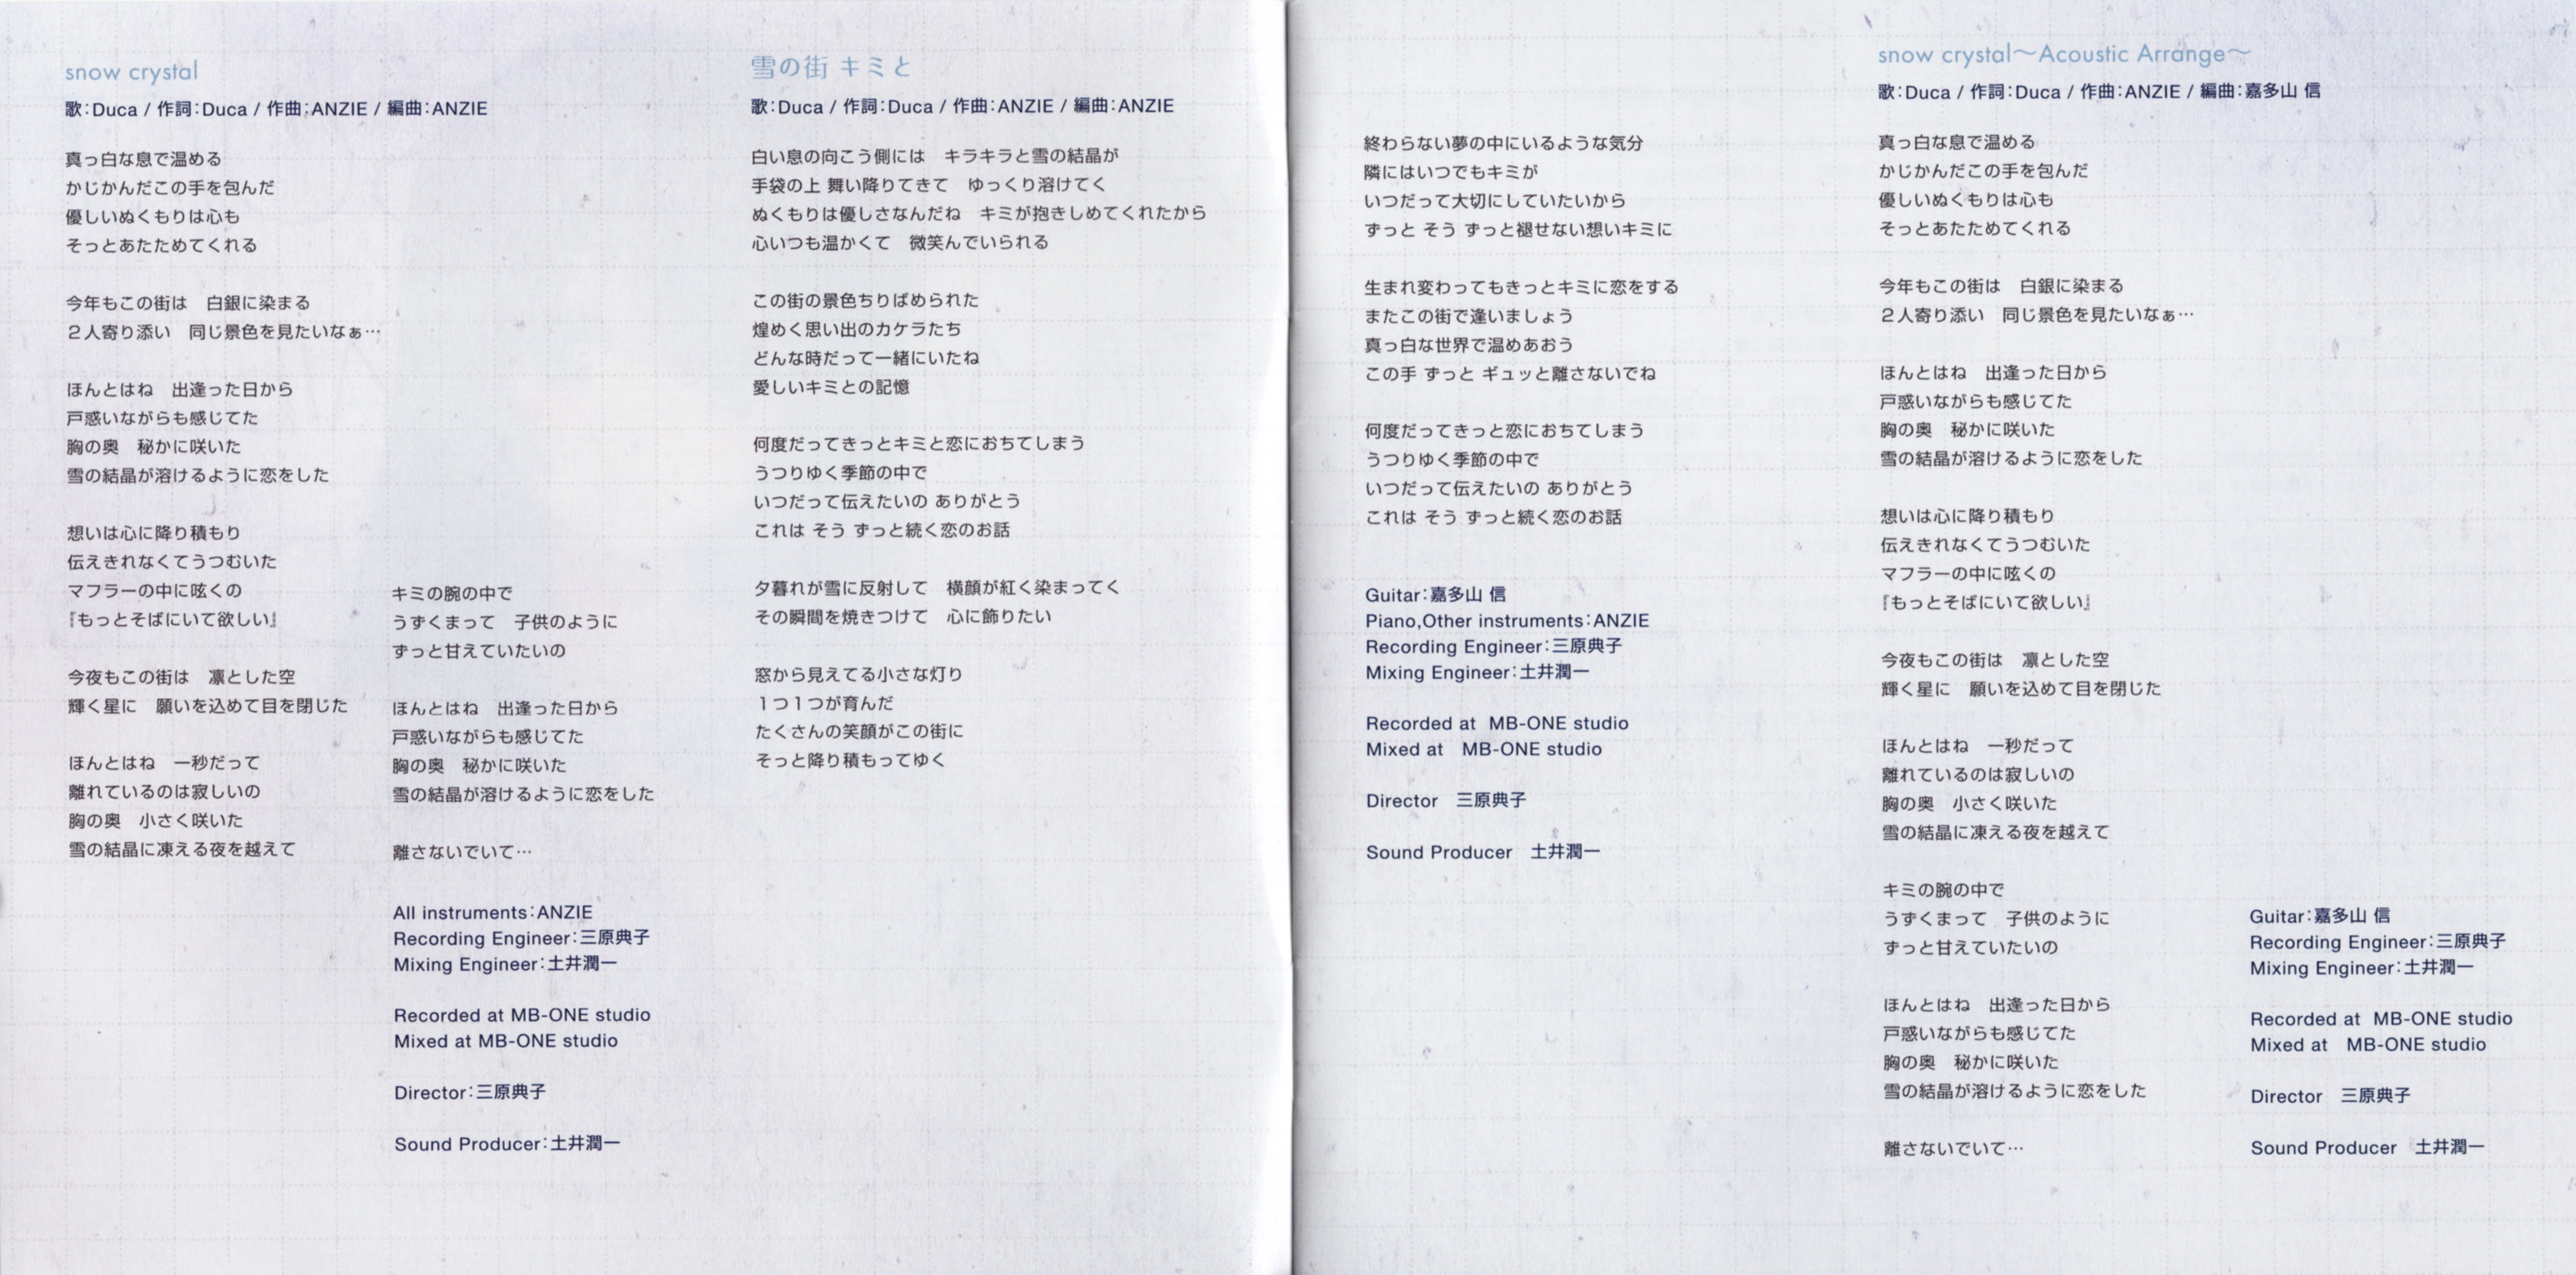 snow crystal
歌：Duca / 作詞：Duca / 作曲：ANZIE / 編曲：ANZIE
真っ白な息で温める
かじかんだこの手を包んだ
優しいぬくもりは心も
そっとあたためてくれる
今年もこの街は　白銀に染まる
２人寄り添い　同じ景色を見たいなぁ…
ほんとはね　出逢った日から
戸惑いながらも感じてた
胸の奥　秘かに咲いた
雪の結晶が溶けるように恋をした
想いは心に降り積もり
伝えきれなくてうつむいた
マフラーの中に呟くの
『もっとそばにいて欲しい』
今夜もこの街は　凛とした空
輝く星に　願いを込めて目を閉じた
ほんとはね　一秒だって
離れているのは寂しいの
胸の奥　小さく咲いた
雪の結晶に凍える夜を越えて
キミの腕の中で
うずくまって　子供のように
ずっと甘えていたいの
ほんとはね　出逢った日から
戸惑いながらも感じてた
胸の奥　秘かに咲いた
雪の結晶が溶けるように恋をした
離さないでいて…
All instruments：ANZIE
Recording Engineer：三原典子
Mixing Engineer：土井潤一
Recorded at MB-ONE studio
Mixed at MB-ONE studio
Director：三原典子
Sound Producer：土井潤一
雪の街 キミと
歌：Duca / 作詞：Duca / 作曲：ANZIE / 編曲：ANZIE
白い息の向こう側には　キラキラと雪の結晶が
手袋の上 舞い降りてきて　ゆっくり溶けてく
ぬくもりは優しさなんだね　キミが抱きしめてくれたから
心いつも温かくて　微笑んでいられる
この街の景色ちりばめられた
煌めく思い出のカケラたち
どんな時だって一緒にいたね
愛しいキミとの記憶
何度だってきっとキミと恋におちてしまう
うつりゆく季節の中で
いつだって伝えたいの ありがとう
これは そう ずっと続く恋のお話
夕暮れが雪に反射して　横顔が紅く染まってく
その瞬間を焼きつけて　心に飾りたい
窓から見えてる小さな灯り
１つ１つが育んだ
たくさんの笑顔がこの街に
そっと降り積もってゆく
終わらない夢の中にいるような気分
隣にはいつでもキミが
いつだって大切にしていたいから
ずっと そう ずっと褪せない想いキミに
生まれ変わってもきっとキミに恋をする
またこの街で逢いましょう
真っ白な世界で温めあおう
この手 ずっと ギュッと離さないでね
何度だってきっと恋におちてしまう
うつりゆく季節の中で
いつだって伝えたいの ありがとう
これは そう ずっと続く恋のお話
Guitar：嘉多山 信
Piano,Other instruments：ANZIE
Recording Engineer：三原典子
Mixing Engineer：土井潤一
Recorded at  MB-ONE studio
Mixed at　MB-ONE studio
Director　三原典子
Sound Producer　土井潤一
snow crystal～Acoustic Arrange～
歌：Duca / 作詞：Duca / 作曲：ANZIE / 編曲：嘉多山 信
真っ白な息で温める
かじかんだこの手を包んだ
優しいぬくもりは心も
そっとあたためてくれる
今年もこの街は　白銀に染まる
２人寄り添い　同じ景色を見たいなぁ…
ほんとはね　出逢った日から
戸惑いながらも感じてた
胸の奥　秘かに咲いた
雪の結晶が溶けるように恋をした
想いは心に降り積もり
伝えきれなくてうつむいた
マフラーの中に呟くの
『もっとそばにいて欲しい』
今夜もこの街は　凛とした空
輝く星に　願いを込めて目を閉じた
ほんとはね　一秒だって
離れているのは寂しいの
胸の奥　小さく咲いた
雪の結晶に凍える夜を越えて
キミの腕の中で
うずくまって　子供のように
ずっと甘えていたいの
ほんとはね　出逢った日から
戸惑いながらも感じてた
胸の奥　秘かに咲いた
雪の結晶が溶けるように恋をした
離さないでいて…
Guitar：嘉多山 信
Recording Engineer：三原典子
Mixing Engineer：土井潤一
Recorded at  MB-ONE studio
Mixed at　MB-ONE studio
Director　三原典子
Sound Producer　土井潤一